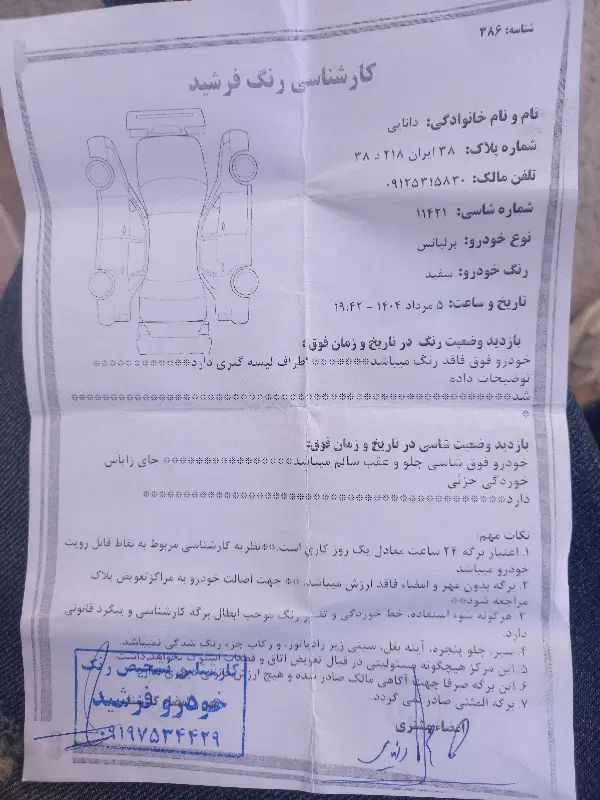 شناسه: ۳۸۶
کارشناسی رنگ فرشید
نام و نام خانوادگی: دانایی
شماره پلاک: ۳۸ ایران ۲۱۸ د ۳۸
تلفن مالک: ۰۹۱۲۵۳۱۵۸۳۰
شماره شاسی: ۱۱۴۲۱
نوع خودرو: برلیانس
رنگ خودرو: سفید
تاریخ و ساعت: ۵ مرداد ۱۴۰۴ - ۱۹:۴۲
بازدید وضعیت رنگ در تاریخ و زمان فوق:
خودرو فوق فاقد رنگ میباشد******* اطراف لیسه گیری دارد************
توضیحات داده
شد
*
بازدید وضعیت شاسی در تاریخ و زمان فوق:
خودرو فوق شاسی جلو و عقب سالم میباشد************** جای زاپاس
خوردگی جزئی
دارد
نکات مهم:
۱. اعتبار برگه ۲۴ ساعت معادل یک روز کاری است.**نظریه کارشناسی مربوط به نقاط قابل رویت
خودرو میباشد
۲. برگه بدون مهر و امضاء فاقد ارزش میباشد. ** جهت اصالت خودرو به مراکز تعویض پلاک
مراجعه شود**
۳. هرگونه سوء استفاده، خط خوردگی و رنگ موجب ابطال برگه کارشناسی و پیگرد قانونی
دارد.
۴. سپر، جلو پنجره، آینه بغل، سینی زیر رادیاتور، و رکاب جزء رنگ شدگی نمیباشد.
۵. این مرکز هیچگونه مسئولیتی در قبال تعویض اتاق و قطعات نخواهد داشت.
۶. این برگه صرفا جهت آگاهی مالک صادر شده و هیچ ارزش
۷. برگه المثنی صادر نمی گردد.
امضاء مشتری
کارشناسی تشخیص رنگ
خودرو فرشید
۰۹۱۹۷۵۳۴۴۲۹